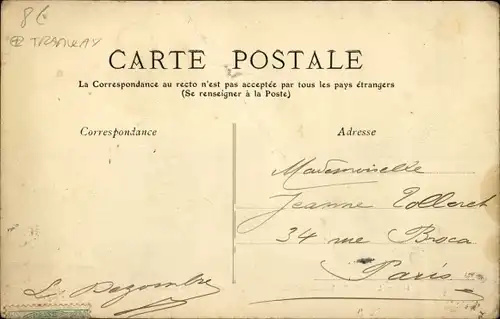 8€
TRAMWAY
CARTE POSTALE
La Correspondance au recto n'est pas acceptée par tous les pays étrangers
(Se renseigner à la Poste)
Correspondance
Adresse
Mademoiselle
Jeanne Tolleret
34 rue Broca
Paris